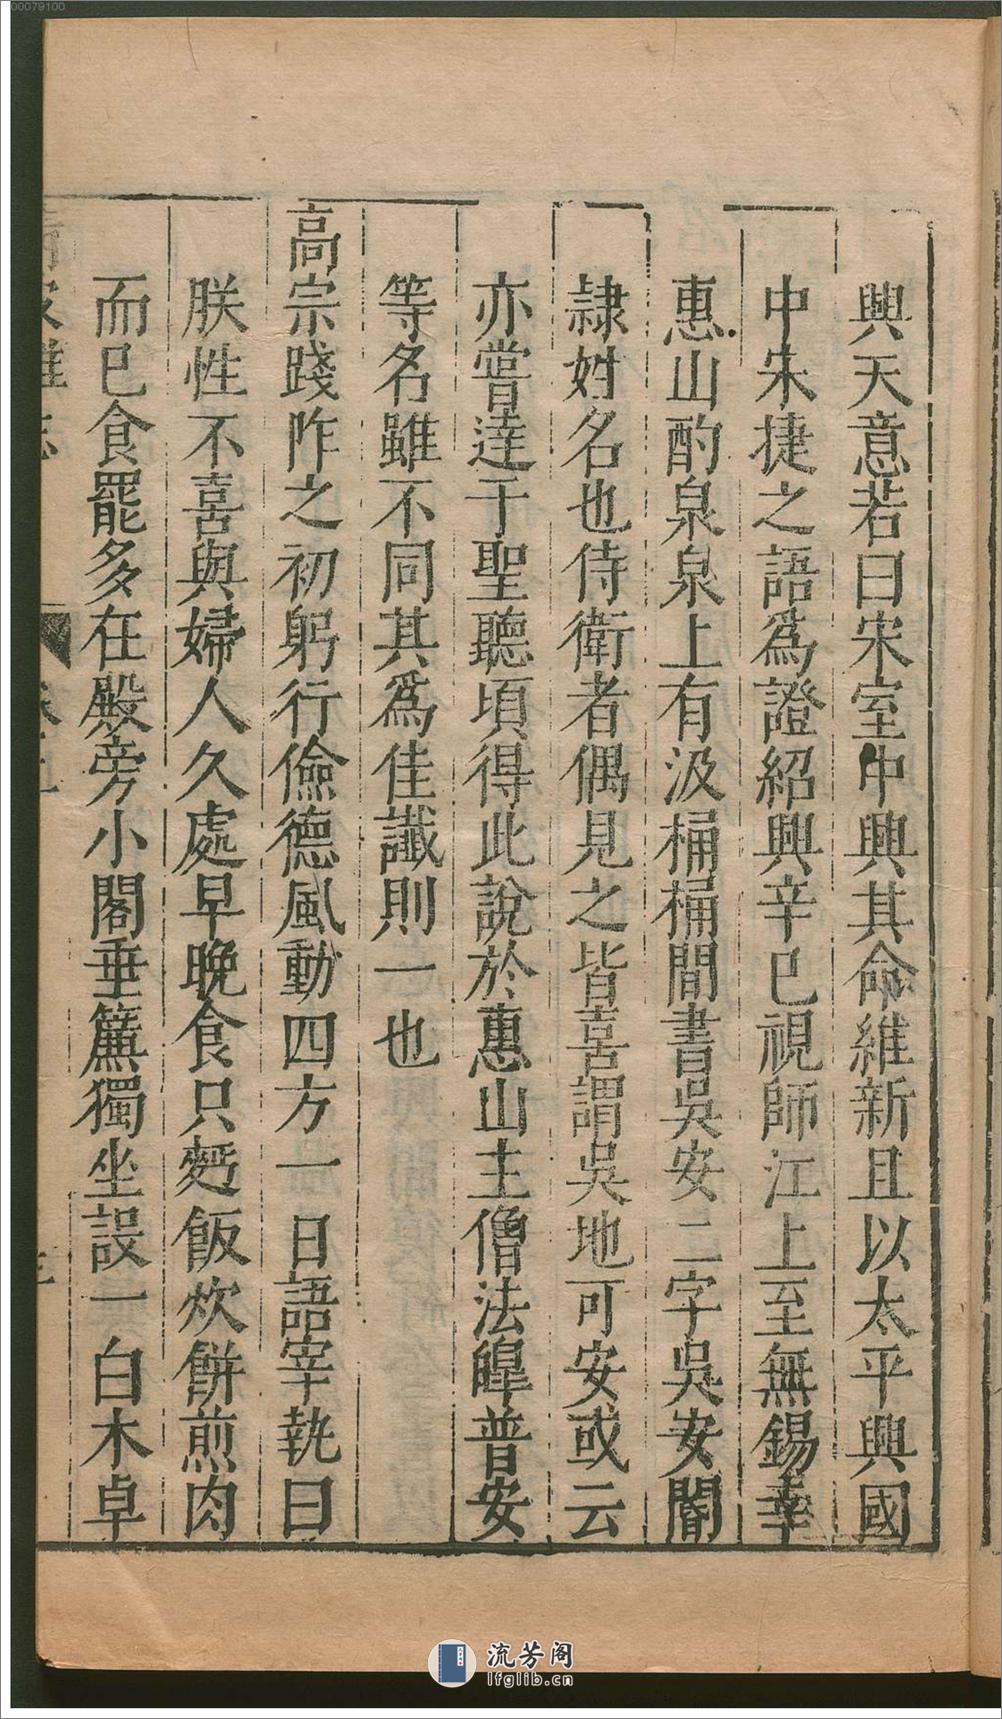 興天意若曰宋室中興其命維新且以太平興國
中朱捷之語爲證紹興辛巳視師江上至無錫幸
惠山酌泉泉上有汲桶桶間書吳安二字吳安閽
隷姓名也侍衛者偶見之皆喜謂吳地可安或云
亦嘗達于聖聽頃得此說於惠山主僧法皥普安
等名雖不同其爲佳讖則一也
高宗踐阼之初躬行儉德風動四方一日語宰執曰
朕性不喜與婦人久處早晚食只麪飯炊餅煎肉
而已食罷多在殿旁小閣垂簾獨坐設一白木卓
清波雜志
00079100
流芳阁
lfglib.cn